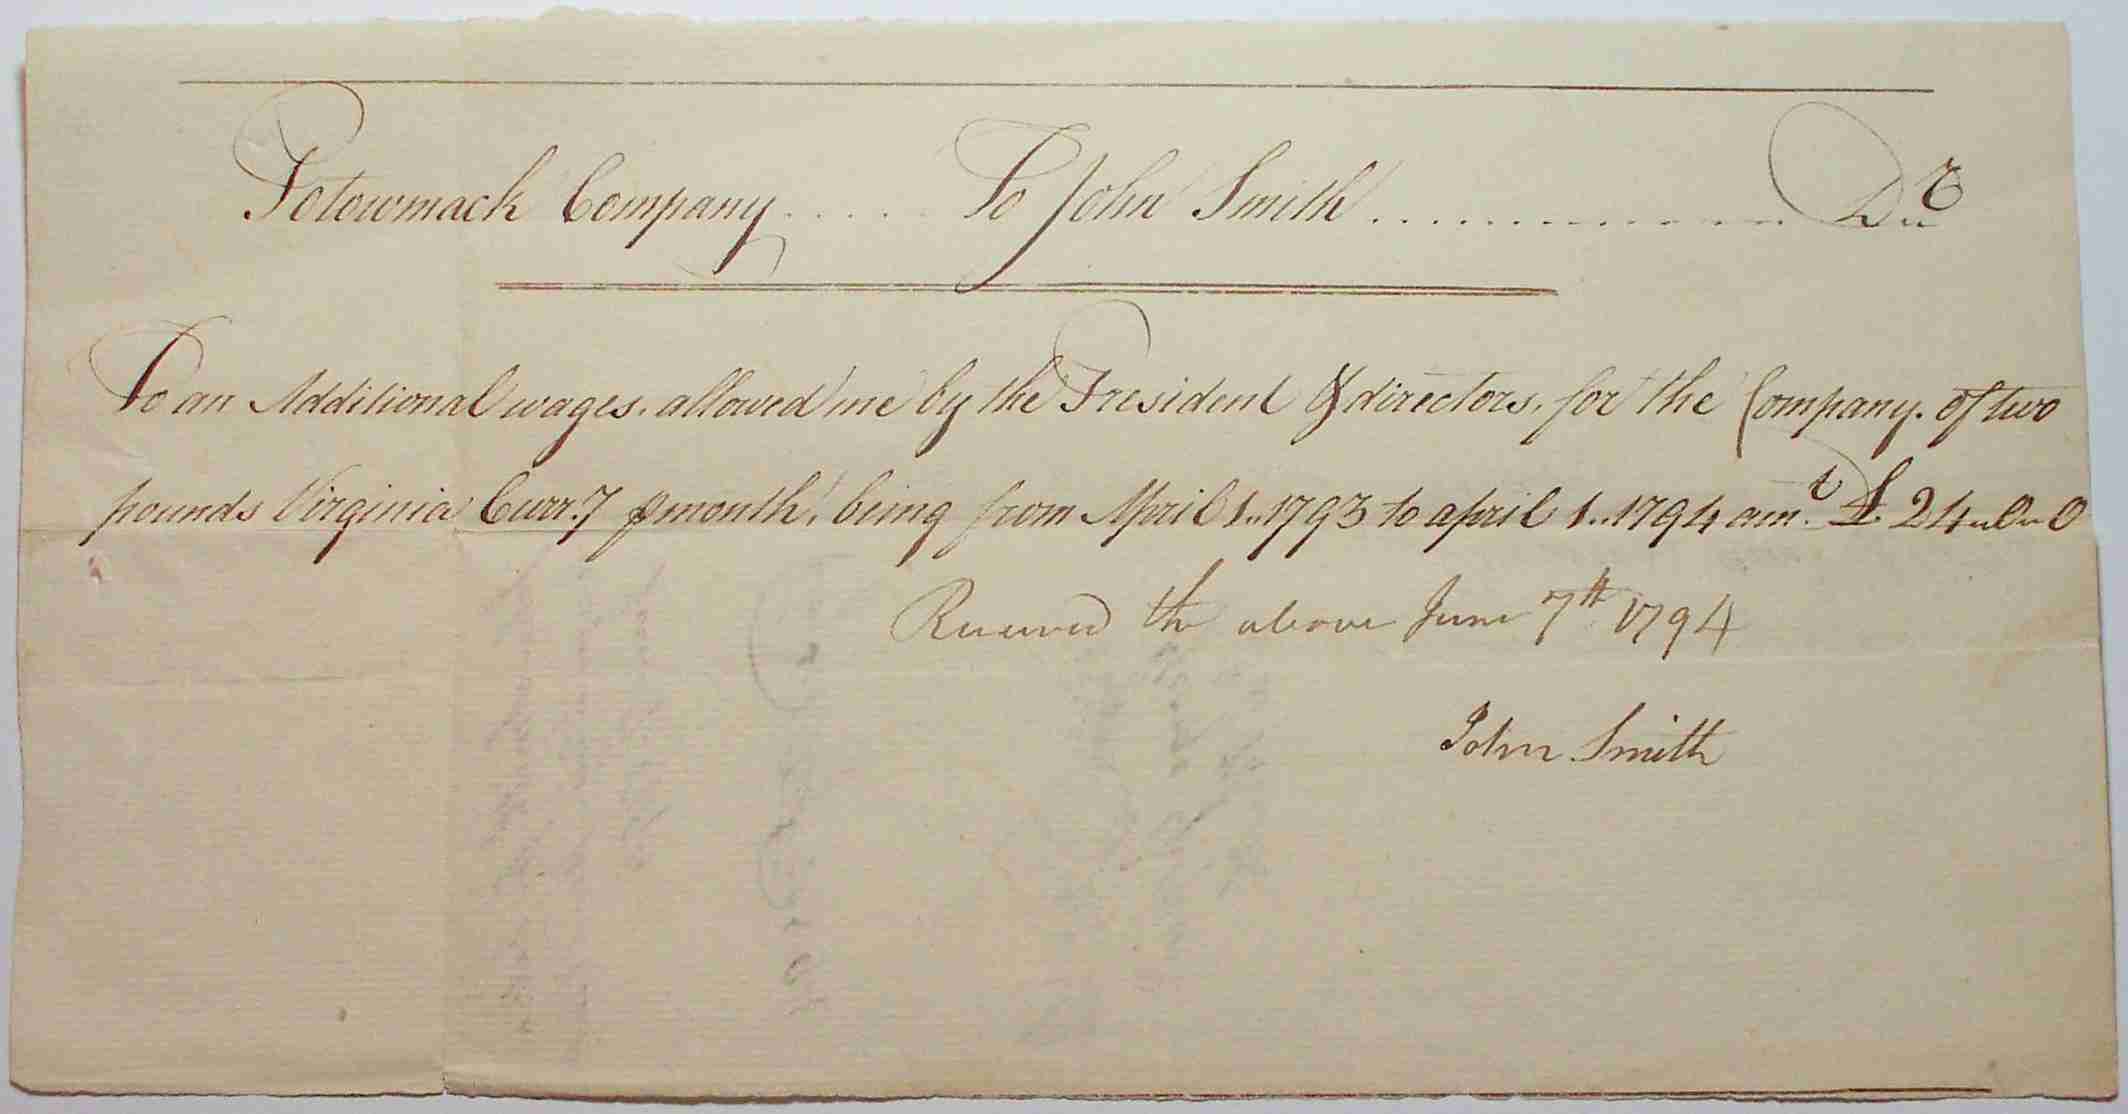 Potowmack Company ..... To John Smith ............... Dr
To an Additional wages. allowed me by the President & directors, for the Company. of two
pounds Virginia Curr.y ⅌ month, being from April 1..1793 to april 1..1794 am.t £ 24..0..0
Received the above June 7th 1794
John Smith